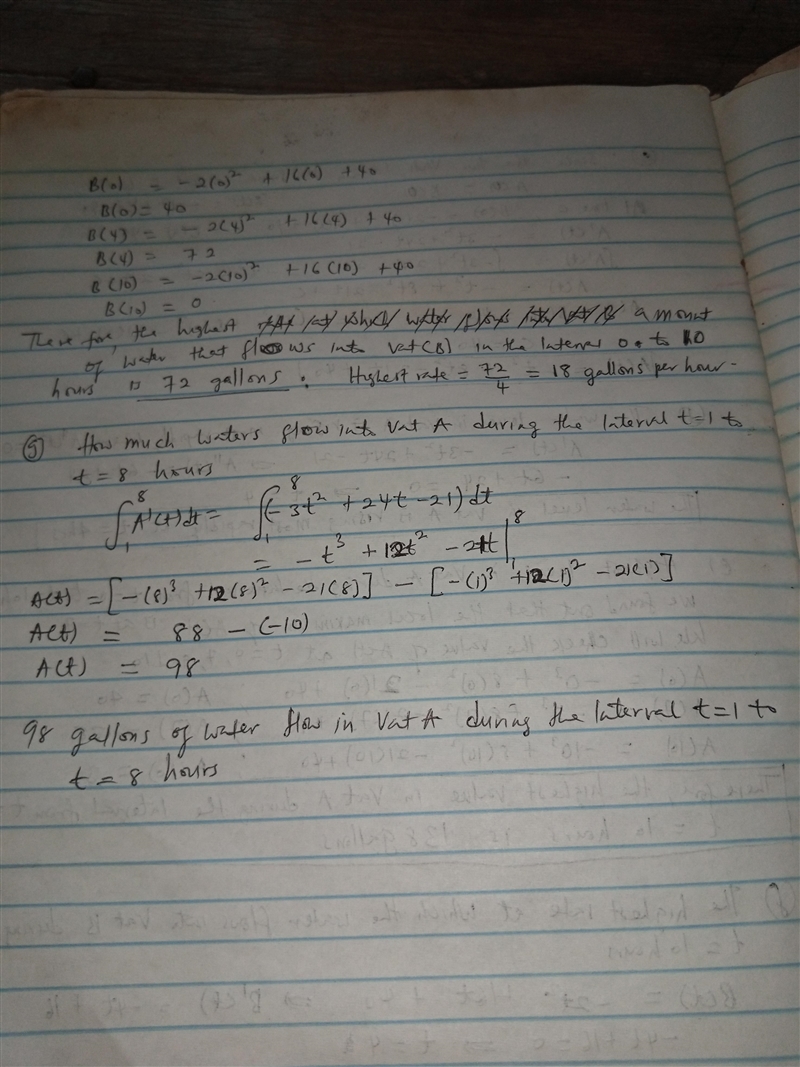 B(0) = -2(0)² + 16(0) + 40
B(0) = 40
B(4) = -2(4)² + 16(4) + 40
B(4) = 72
B(10) = -2(10)² + 16(10) + 40
B(10) = 0
Therefore, the highest amount
of water that flows into Vat(B) in the Interval 0 to 10
hours is 72 gallons. Highest rate = 72/4 = 18 gallons per hour.
(g) How much waters flow into Vat A during the Interval t=1 to
t = 8 hours
∫₁⁸ A'(t)dt = ∫₁⁸ (-3t² + 24t - 21) dt
= -t³ + 12t² - 21t |₁⁸
A(t) = [-(8)³ + 12(8)² - 21(8)] - [-(1)³ + 12(1)² - 21(1)]
A(t) = 88 - (-10)
A(t) = 98
98 gallons of water flow in Vat A during the Interval t=1 to
t = 8 hours